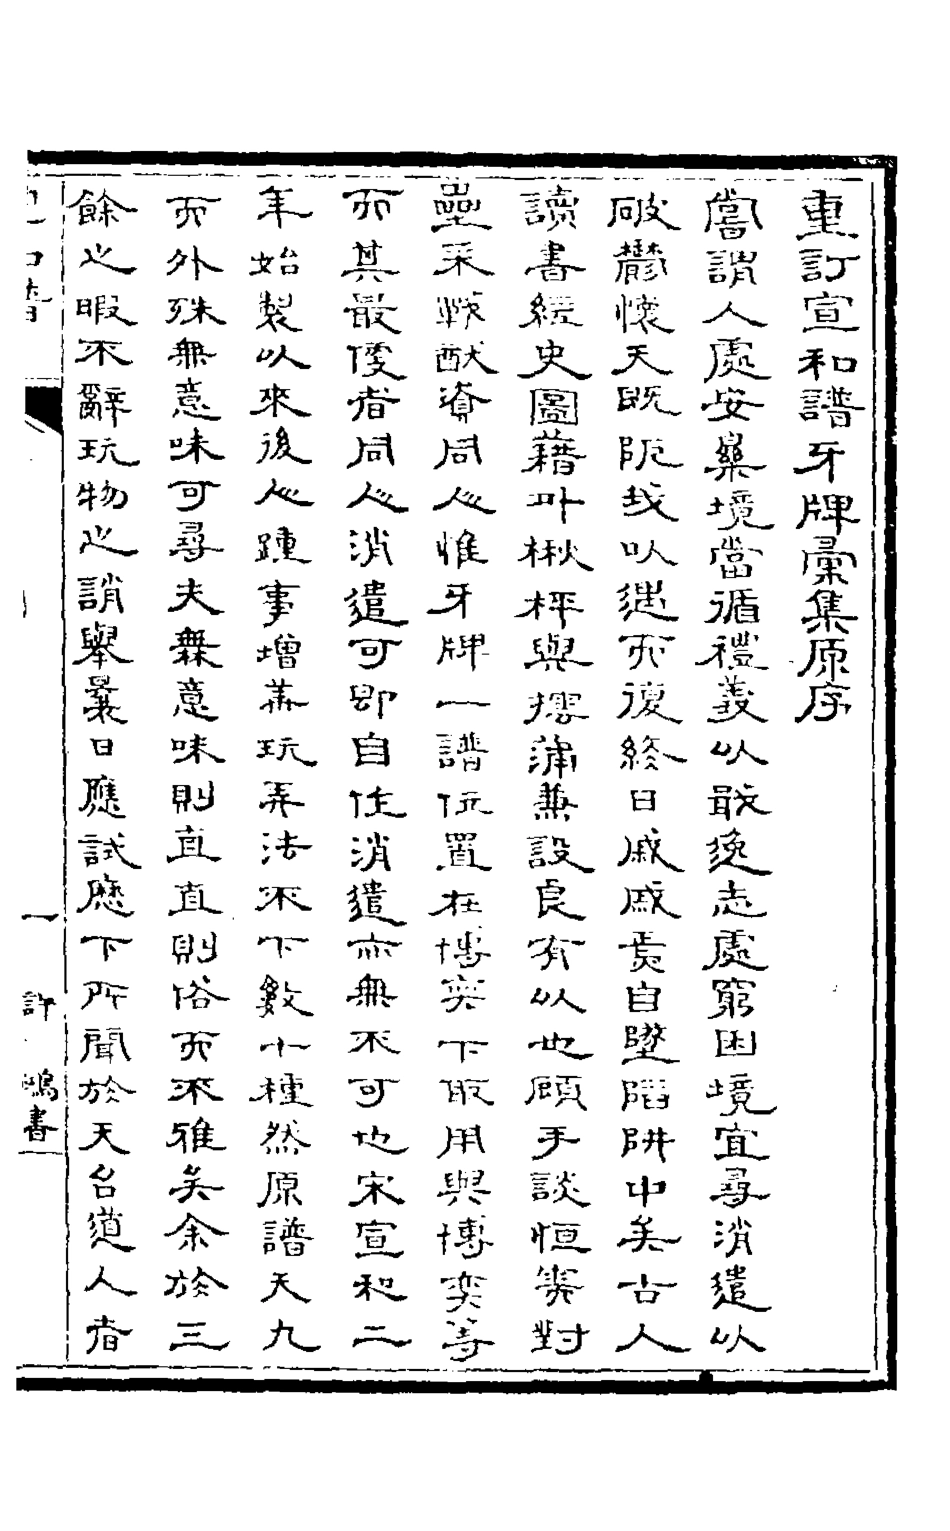 重訂宣和譜牙牌彙集原序
嘗謂人處安樂境當循禮義以戢逸志處窮困境宜尋消遣以
破鬱懷天既阨我以遇而復終日戚戚焉自墜陷阱中矣古人
讀書經史圖籍外楸枰與摴蒲兼設良有以也顧手談恒寡對
壘采戰猷資同心惟牙牌一譜位置在博奕下取用與博奕等
而其最優者同心消遣可即自住消遣亦無不可也宋宣和二
年始製以來後心踵事增華玩弄法不下數十種然原譜天九
而外殊無意味可尋夫無意味則直直則俗而不雅矣余於三
餘之暇不辭玩物之誚舉曩日應試歷下所聞於天台道人者
一 許鴻書